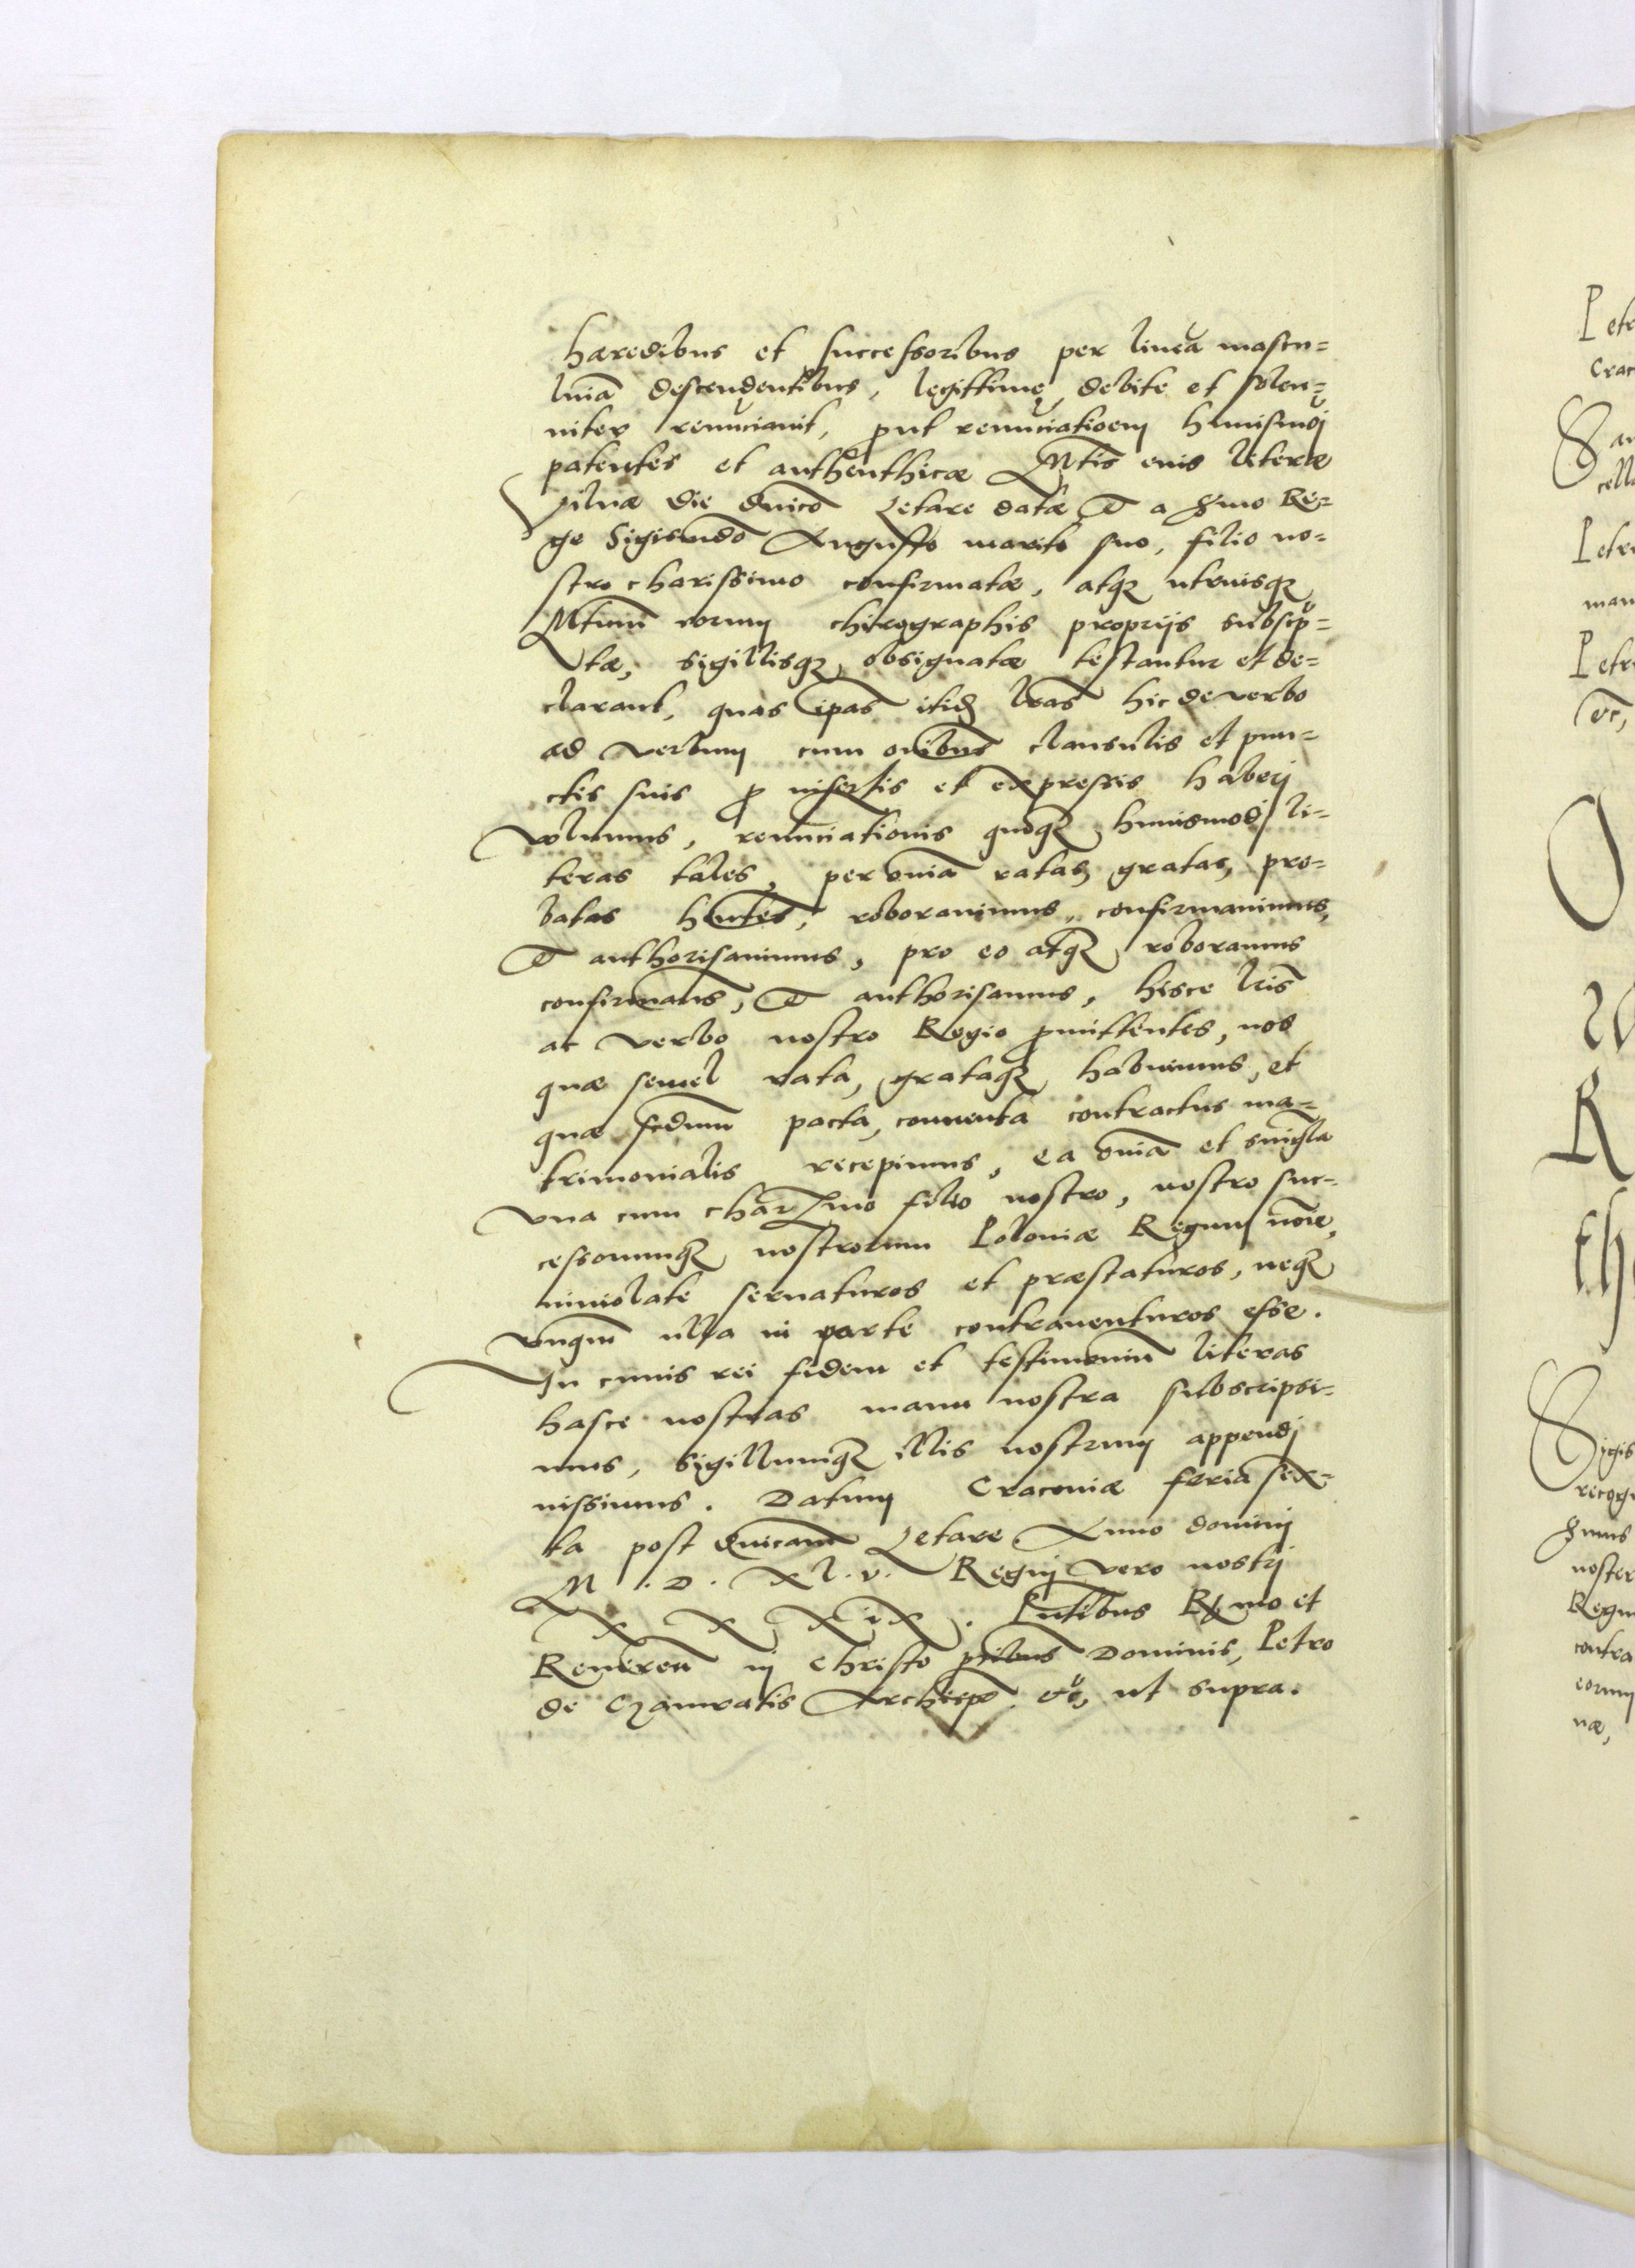 haeredibus et successoribus per lineā mascu=
linā descendentibus, legittime, debite et solen=
niter renūciavit, put renūciatioem huiusmoj
patentes et authenthicæ Mtis eius literæ
Vilnæ die dnico Letare datæ et a Smo Re=
ge Sigismdo Augusto marito suo, filio no=
stro charissimo confirmatæ, atq utriusq
Mtium eorum chirographis proprijs subscp=
tæ, sigillisq obsignatæ testantur et de=
clarant, quas ipas itid lras hic de verbo
ad verbum cum oibus clausulis et pun=
ctis suis p insertis et expressis haberj
volumus, renūciationis quoq huiusmodj li=
teras tales, per omia ratas, gratas, pro=
batas hntes, roboravimus, confirmavimus,
et authorisavimus, pro eo atq roboramus
confirmams, et authorisamus, hisce lris
ac verbo nostro Regio pmittentes, nos
quæ semel rata, grataq habuimus, et
quæ sedum pacta, conventa contractus ma=
trimonialis recepimus, ea omia et singla
una cum charmo filio nostro, nostro suc=
cessorumq nostrorum Poloniæ Regum noie,
inviolate servaturos et præstaturos, neq
unqm ulla in parte contraventuros esse.
In cuius rei fidem et testimoniū literas
hasce nostras manu nostra subscripsi=
mus, sigillumq illis nostrum appendj
iussimus. Datum Cracoviæ feria sex=
ta post dnicam Letare Anno dominj
M.D.xl.v. Regnj vero nostrj
XXXiX. Pntibus Rmo et
Reveren in Christo ptibus Dominis, Petro
de Gamratis Archiepo etc, ut supra.